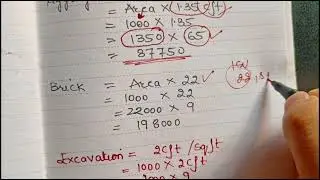 = Area × 1.35 cft
= 1000 × 1.35
= 1350 × 65
= 87750
Brick = Area × 22 ✓
= 1000 × 22
= 22000 × 9
= 198000
Excavation = 2cft /sqft
= 1000 × 2cft